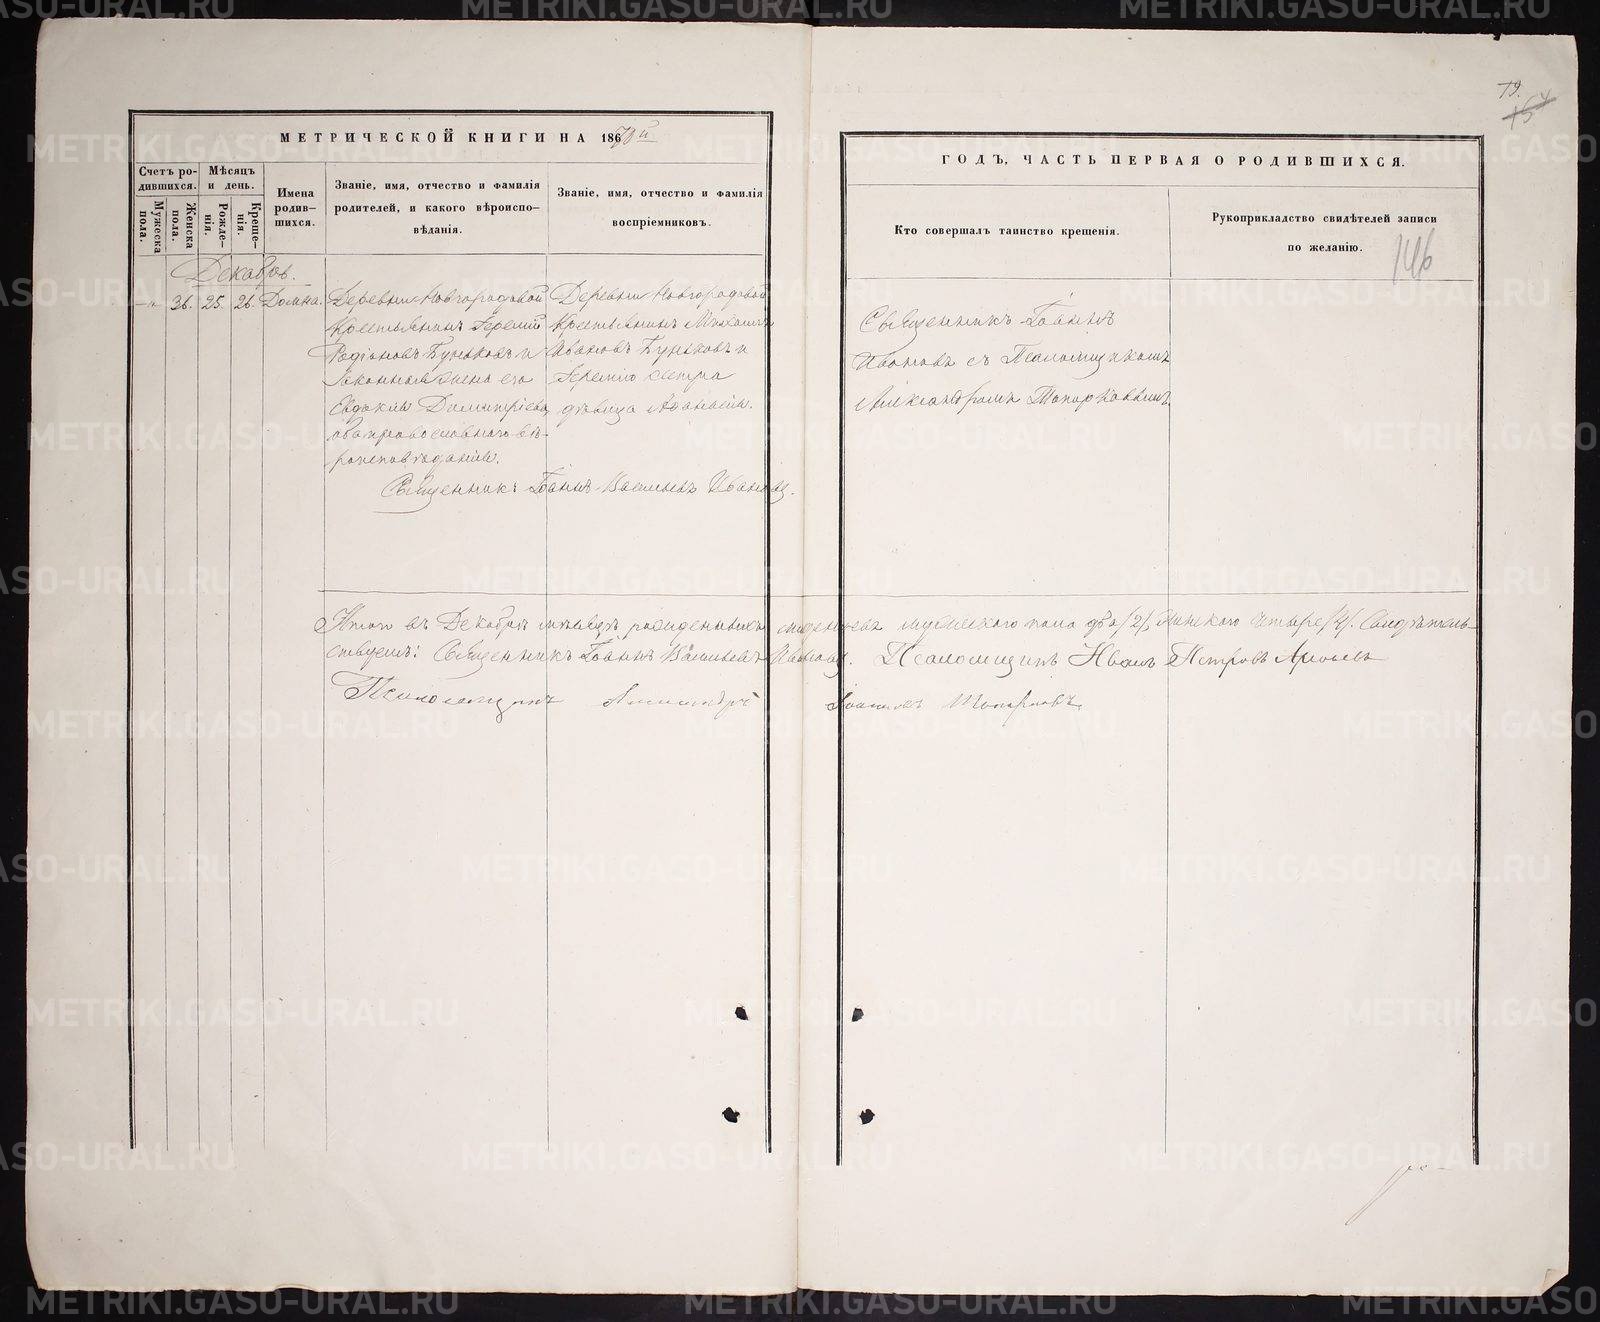 МЕТРИЧЕСКОЙ КНИГИ НА 18673й
Счетъ ро-
дившихся.
Мѣсяцъ
и день.
Мужеска
пола.
Женска
пола.
Рожде-
нія.
Креще-
нія.
Имена
родив-
шихся.
Званіе, имя, отчество и фамилія
родителей, и какого вѣроиспо-
вѣданія.
Званіе, имя, отчество и фамилія
воспріемниковъ.
Декабрь.
-"- 36. 25. 26. Домна.
Деревни Новгородовой
Крестьянинъ
Родіоновъ Буньковъ и
Законная жена его
Евдокія Димитріева,
оба православнаго вѣ-
роисповѣданія.
Деревни Новгородовой
Крестьянинъ Михаилъ
Ивановъ Буньковъ и
сестра
дѣвица
Священникъ Іоаннъ Васильевъ Ивановъ.
Итого въ Декабрѣ мѣсяцѣ рожденныхъ младенцевъ мужескаго пола два /2/, женскаго четыре /4/. Свидѣтель-
ствуемъ: Священникъ Іоаннъ Васильевъ Ивановъ. Псаломщикъ Иванъ Петровъ
Псаломщикъ Александръ Топорковъ
79.
ГОДЪ, ЧАСТЬ ПЕРВАЯ О РОДИВШИХСЯ.
Кто совершалъ таинство крещенія.
Рукоприкладство свидѣтелей записи
по желанію.
146
Священникъ Іоаннъ
Ивановъ съ Псаломщикомъ
Александромъ Топорковымъ.
METRIKI.GASO-URAL.RU